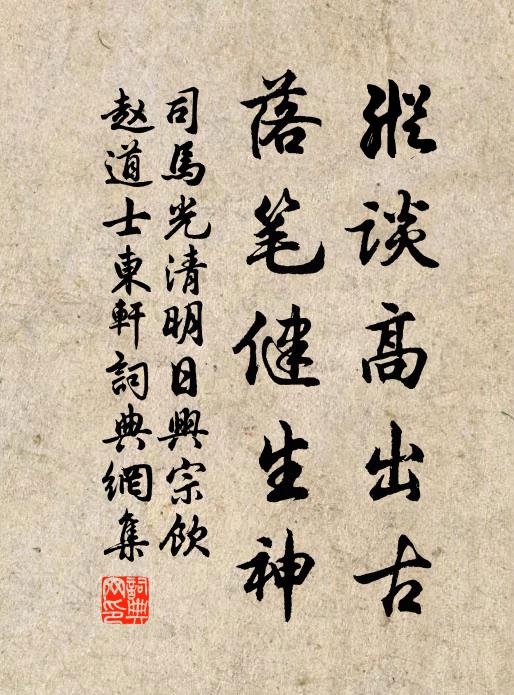 縱談高出古
落笔健生神
司馬光清明日興宗飲
赵道士東軒詞典網集
詞典